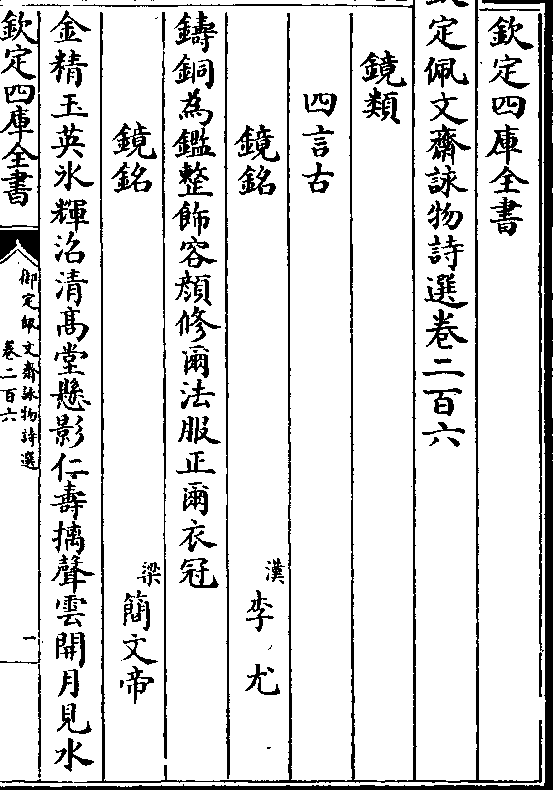 欽定四庫全書
定佩文齋詠物詩選卷二百六
鏡類
四言古
鏡銘 漢 李尤
鑄銅為鑑整飾容顔修爾法服正爾衣冠
鏡銘 梁 簡文帝
金精玉英氷輝沼清髙堂懸影仁壽摛聲雲開月見水
欽定四庫全書
御定佩文齋詠物詩選
卷二百六
一